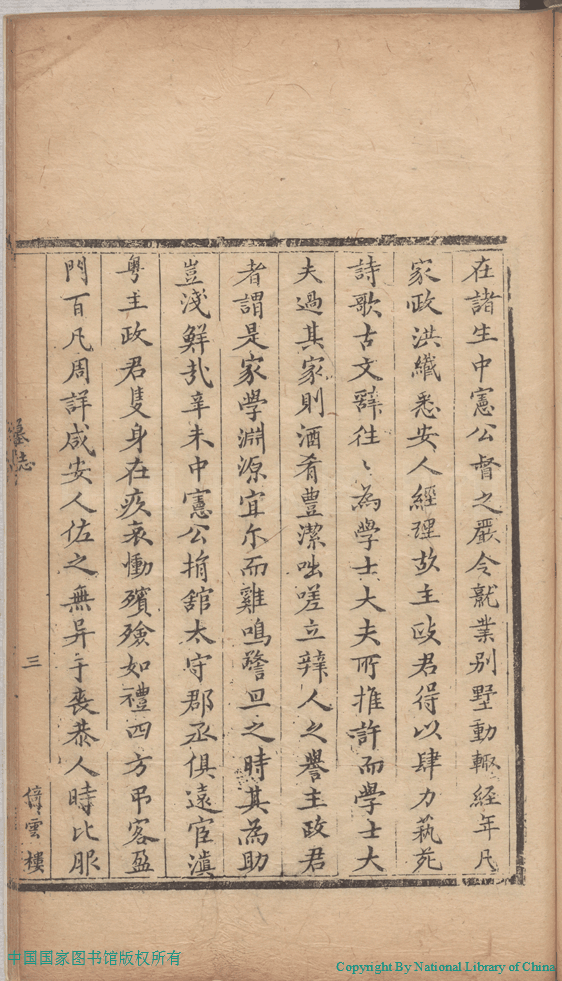 在諸生中憲公督之嚴令就業别墅動輙經年凡
家政洪纎悉安人經理故主政君得以肆力蓺苑
詩歌古文辭徃〻為學士大夫所推許而學士大
夫過其家則酒肴豊潔咄嗟立辦人之譽主政君
者謂是家學淵源宜尓而雞鳴警旦之時其為助
豈淺鮮㢤辛未中憲公捐舘太守郡丞俱遠宦滇
粤主政君隻身在疚哀慟殯殮如禮四方弔客盈
門百凡周詳咸安人佐之無异手喪恭人時比服
墓志
三
倚雲樓
中国国家图书馆版权所有
Copyright By National Library of China